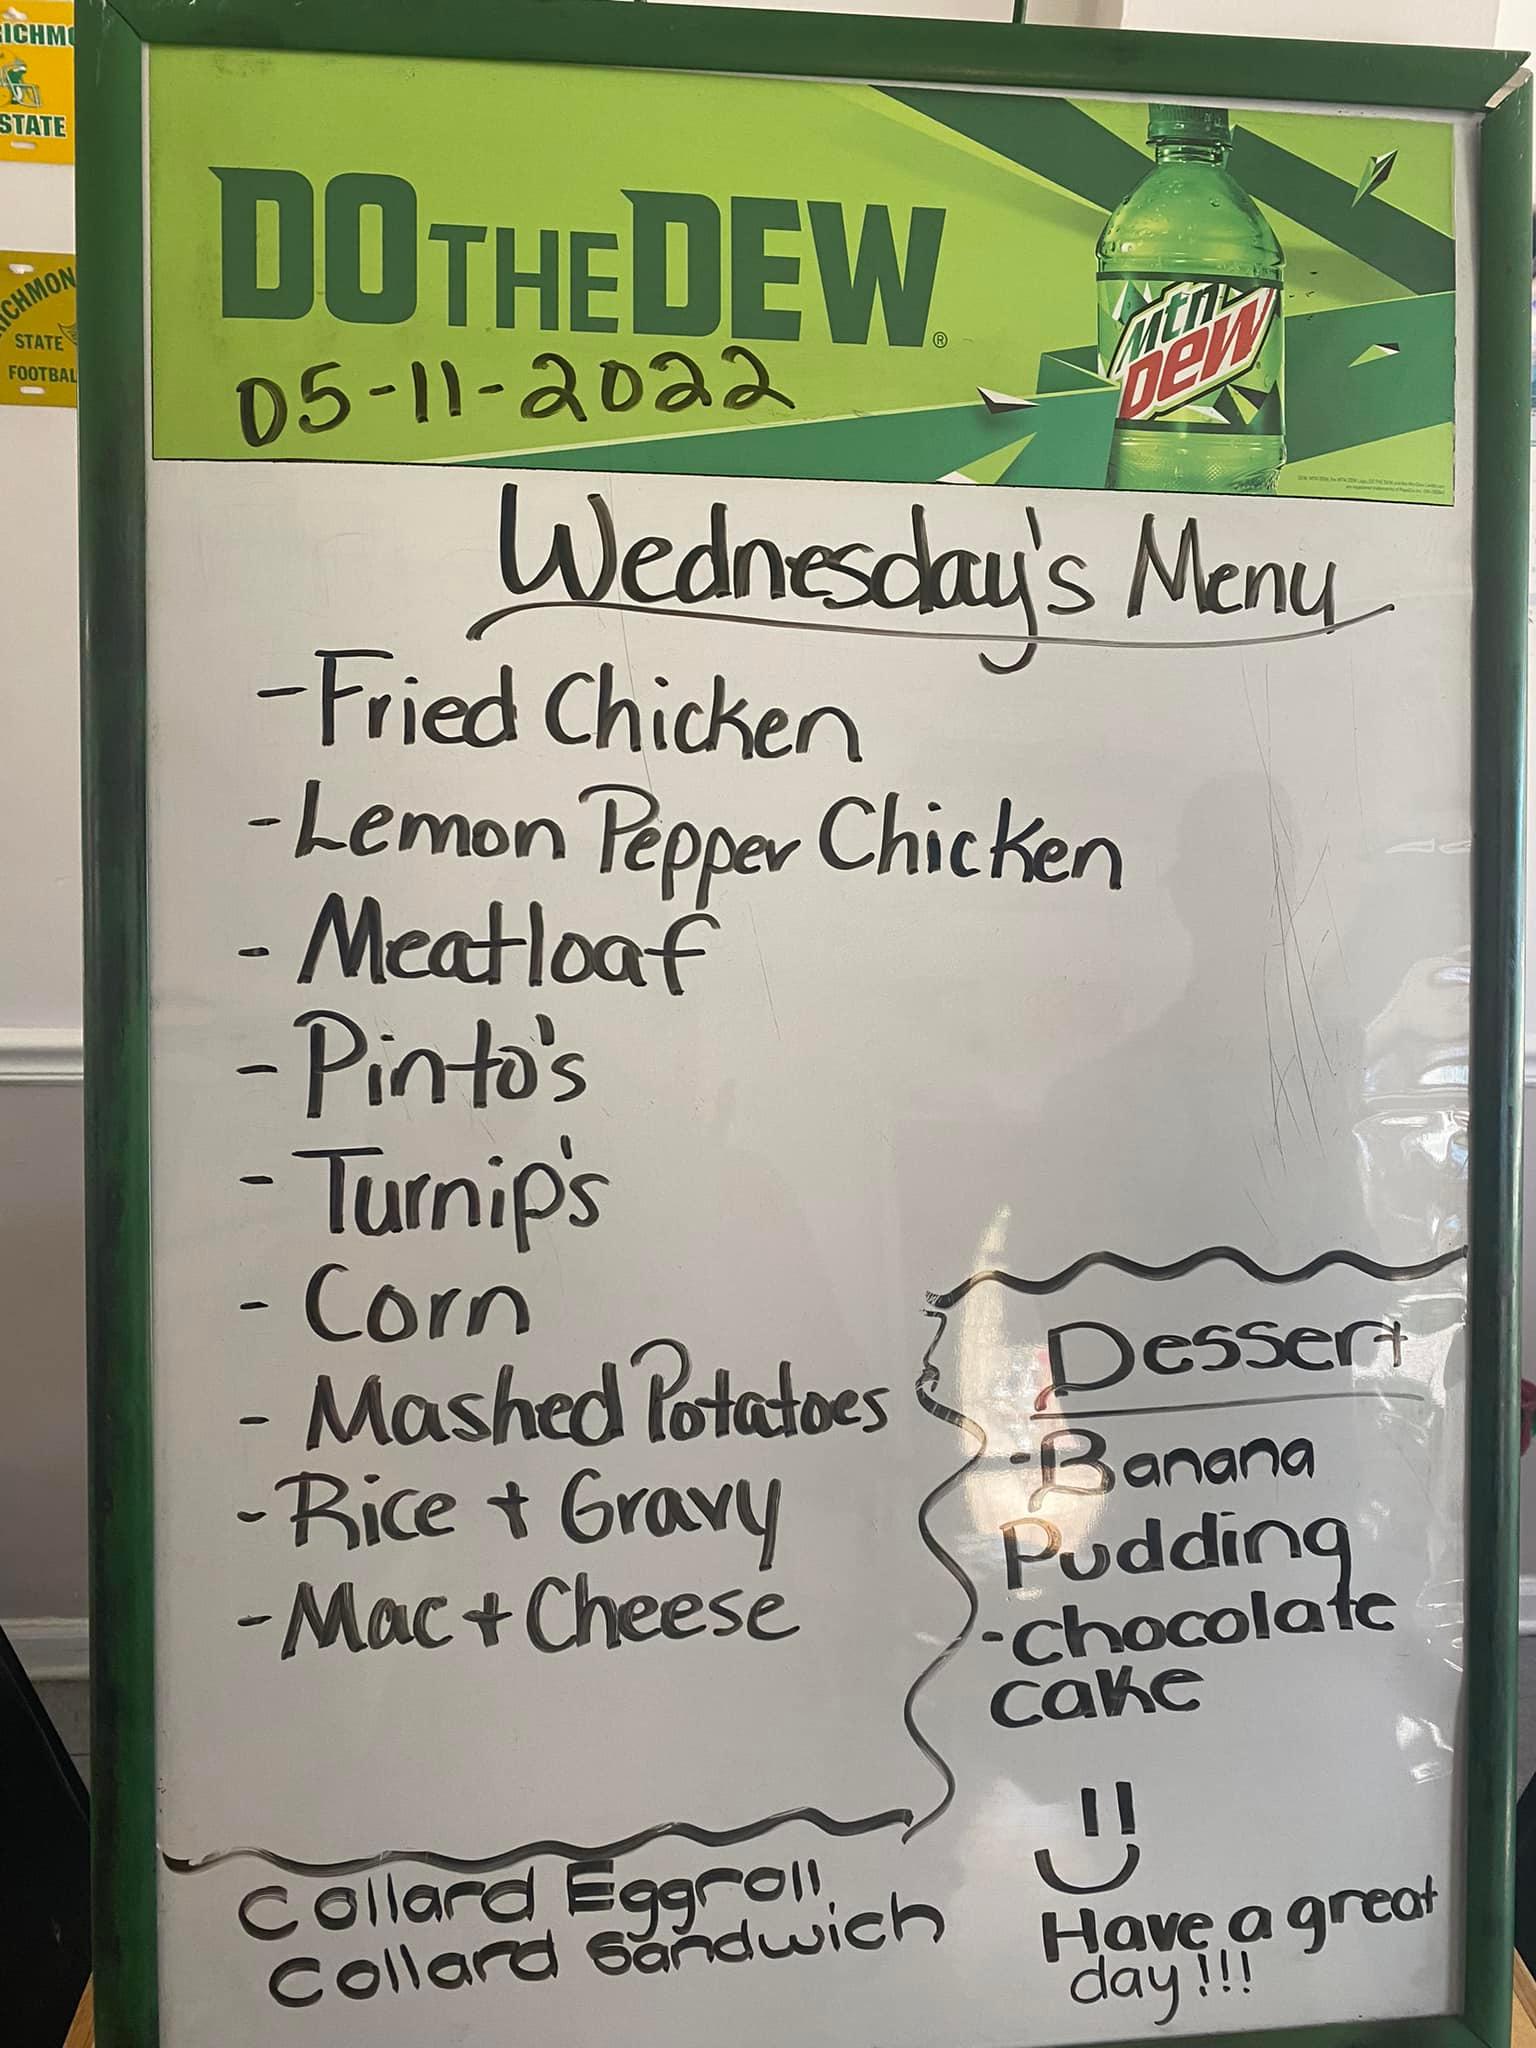 RICHMO
STATE
RICHMON
STATE
FOOTBAL
DO THE DEW®
mtn
DEW
05-11-2022
Wednesday's Menu
- Fried Chicken
- Lemon Pepper Chicken
- Meatloaf
- Pinto's
- Turnip's
- Corn
- Mashed Potatoes
- Rice + Gravy
- Mac + Cheese
Dessert
- Banana
Pudding
- chocolate
cake
Collard Eggroll
Collard Sandwich
Have a great
day!!!